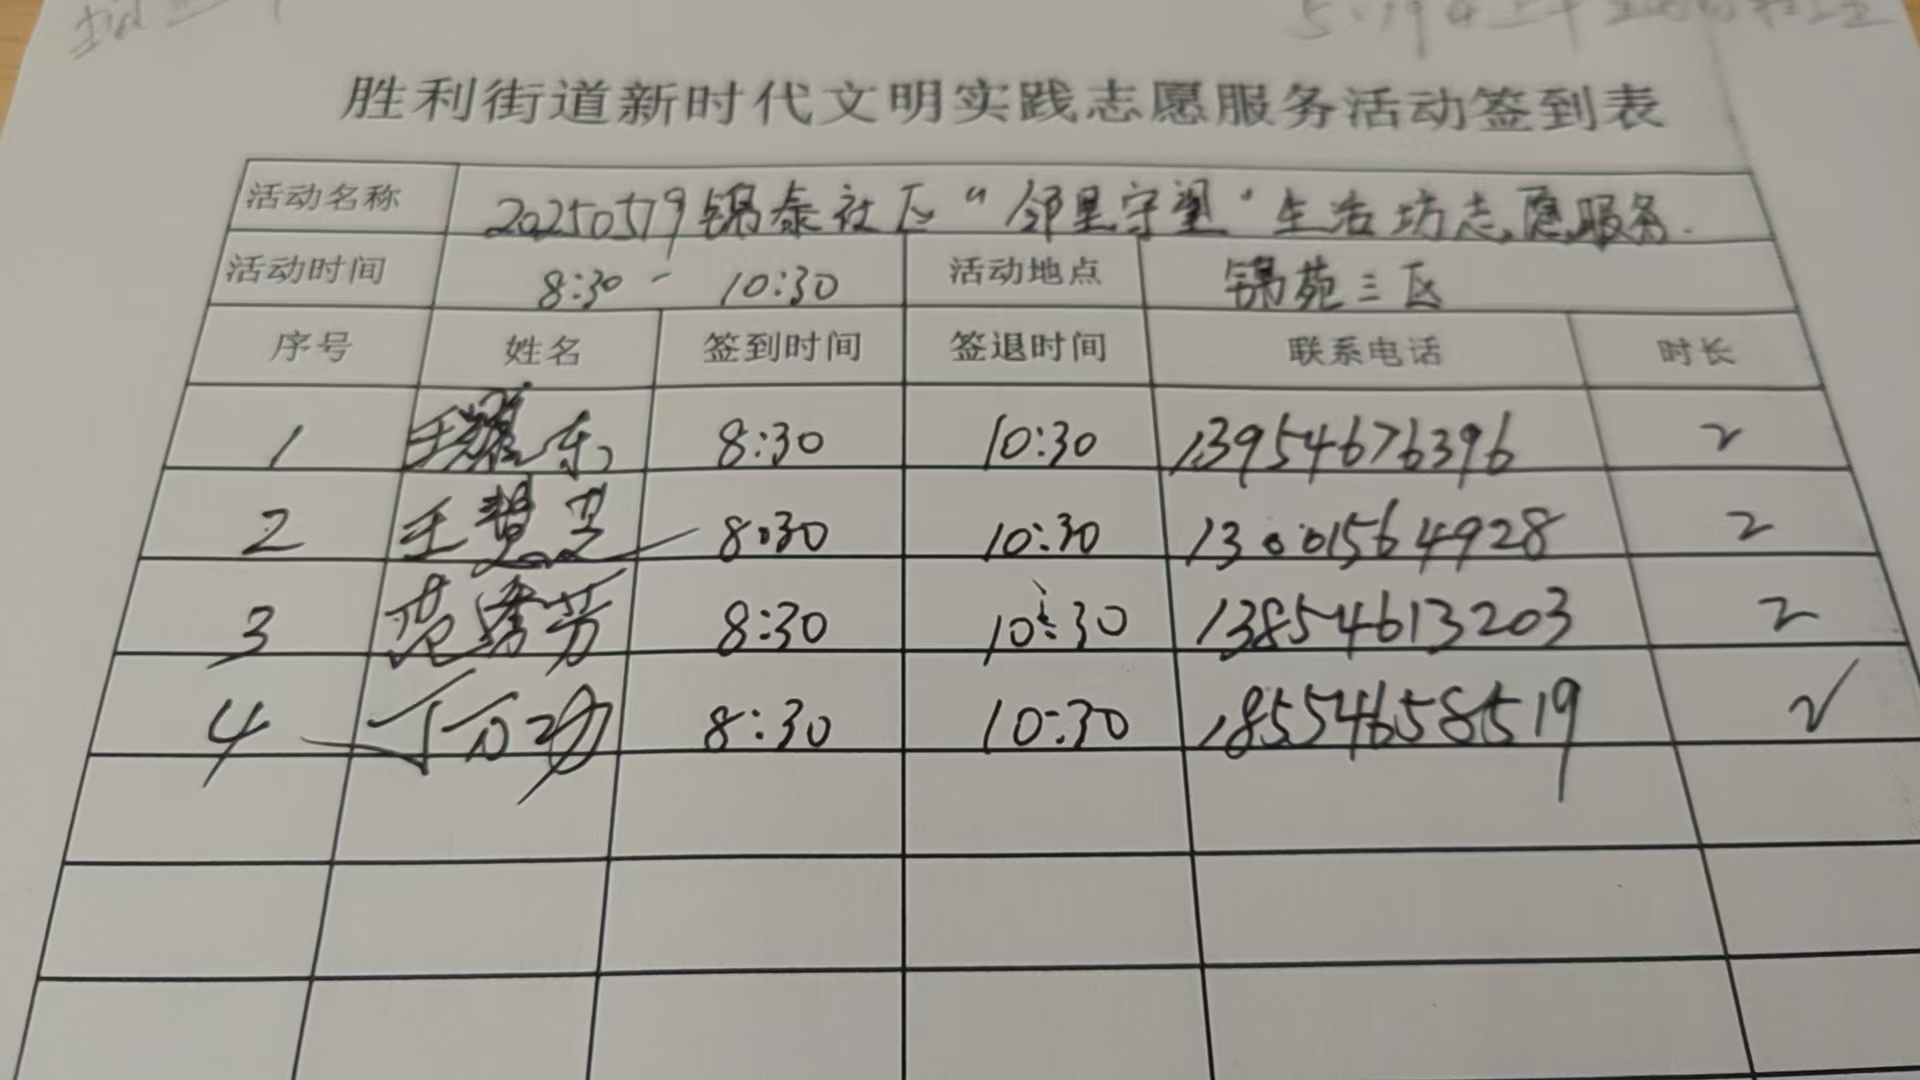 胜利街道新时代文明实践志愿服务活动签到表
活动名称 20250519锦泰社区“邻里守望”生活坊志愿服务.
活动时间 8:30 - 10:30 活动地点 锦苑三区
序号 姓名 签到时间 签退时间 联系电话 时长
1 王耀东 8:30 10:30 13954676396 2
2 王慧 8:30 10:30 13001564928 2
3 范秀芳 8:30 10:30 13854613203 2
4 丁万功 8:30 10:30 18554658519 2